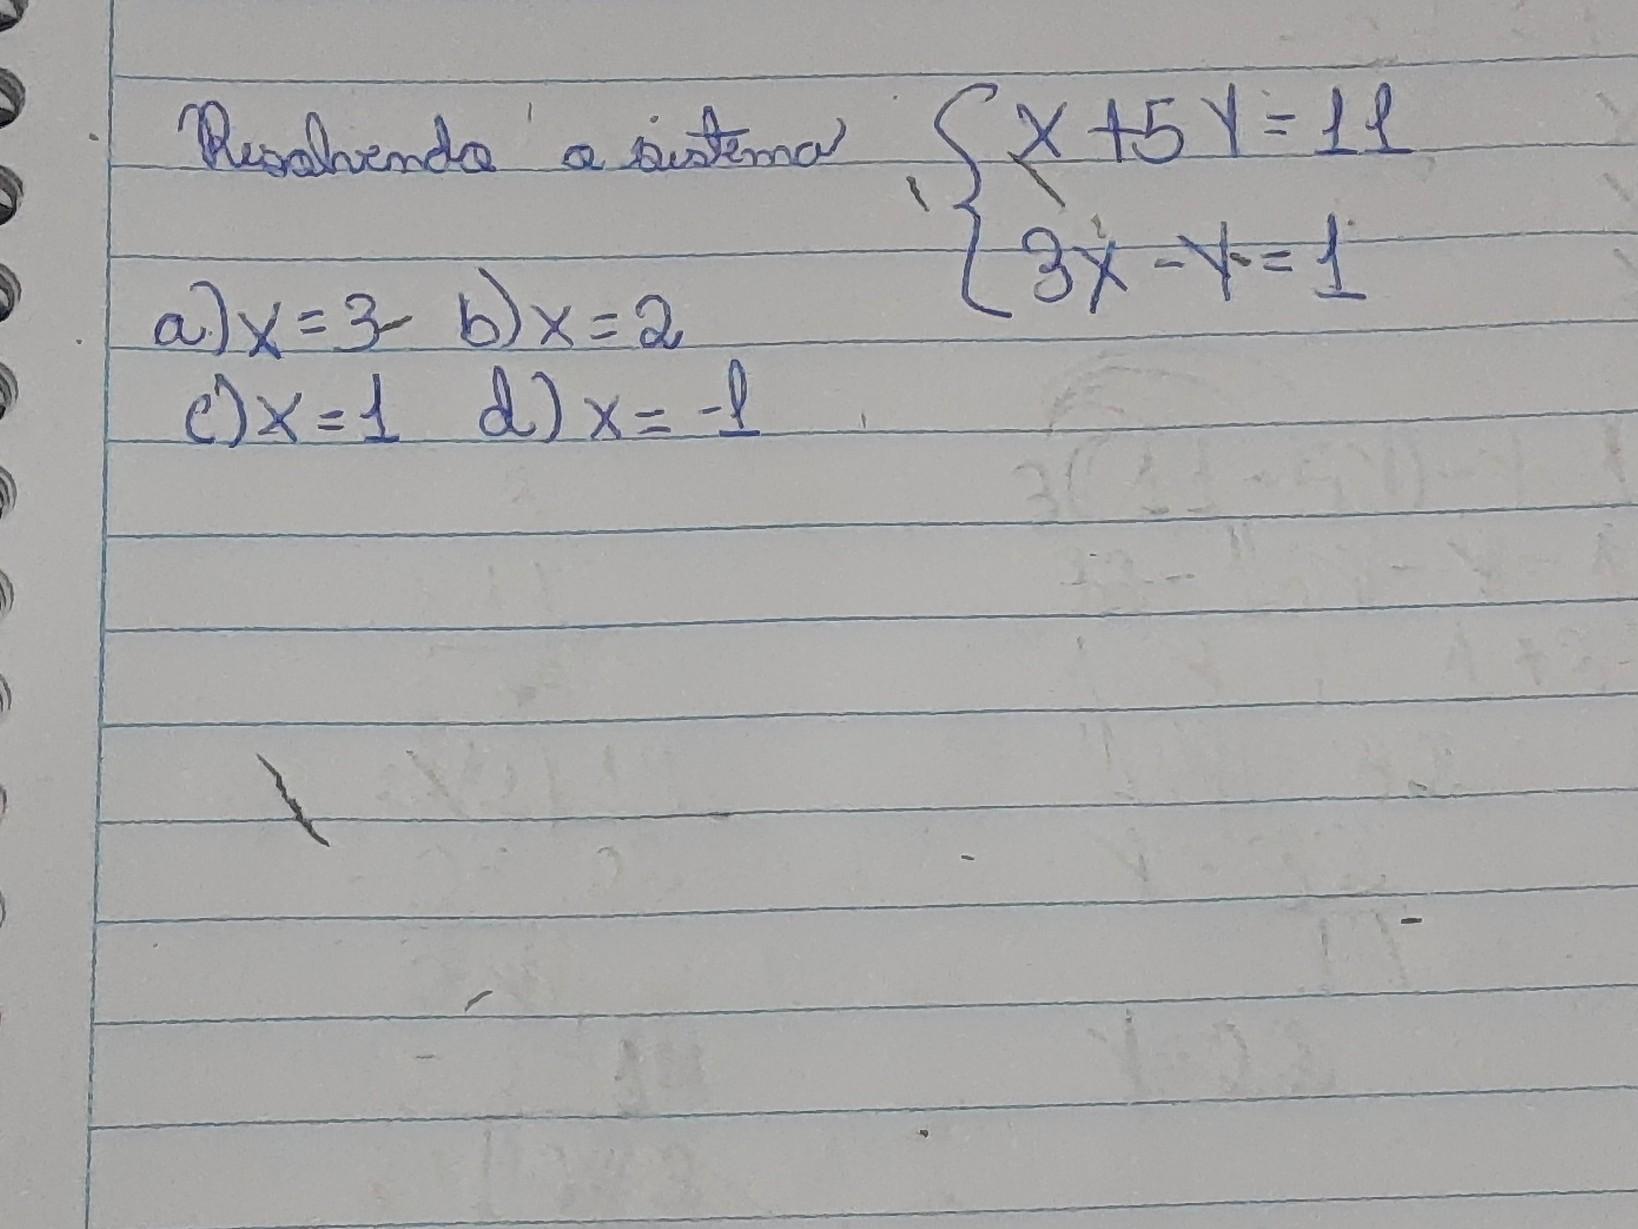 Resolvendo o sistema { x + 5 y = 11
3x - y = 1
a) x = 3 b) x = 2
c) x = 1 d) x = -1